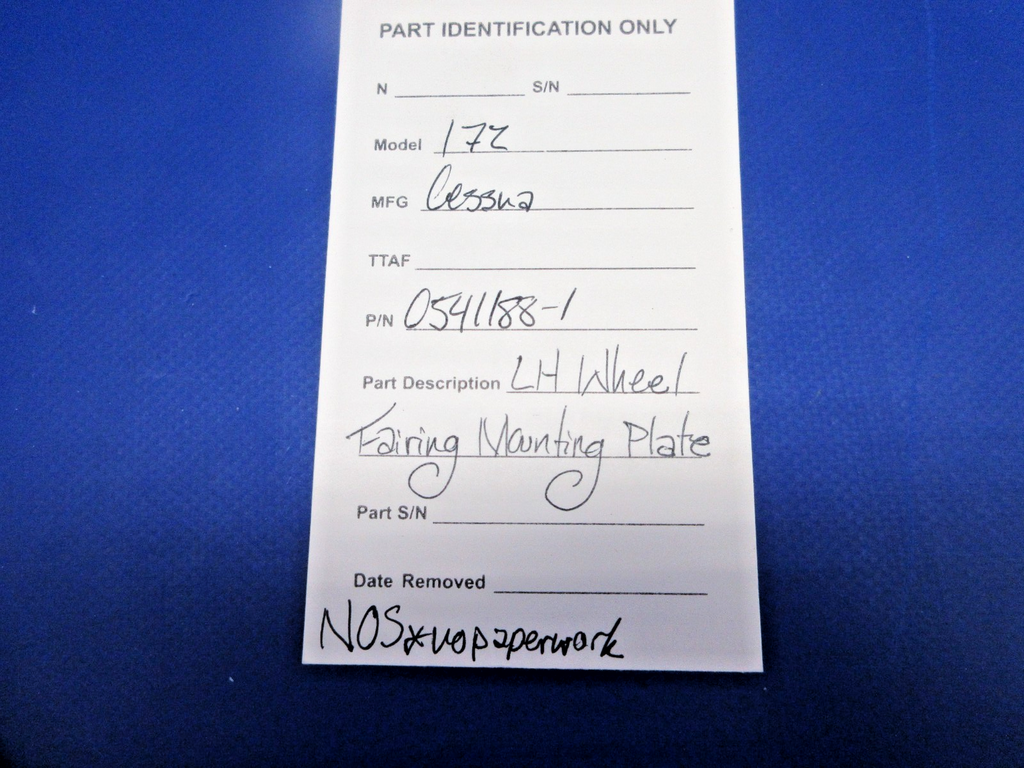 PART IDENTIFICATION ONLY
N S/N
Model 172
MFG Cessna
TTAF
P/N 0541188-1
Part Description LH Wheel
Fairing Mounting Plate
Part S/N
Date Removed
NOS*no paperwork